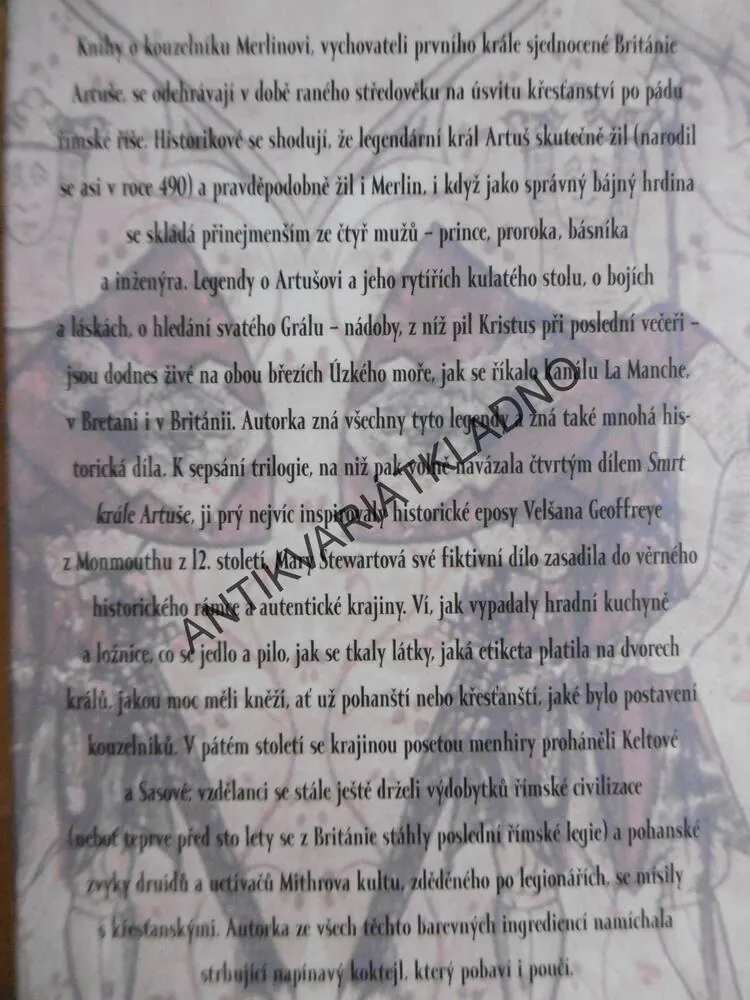 Knihy o kouzelníku Merlinovi, vychovateli prvního krále sjednocené Británie
Artuše, se odehrávají v době raného středověku na úsvitu křesťanství po pádu
římské říše. Historikové se shodují, že legendární král Artuš skutečně žil (narodil
se asi v roce 490) a pravděpodobně žil i Merlin, i když jako správný bájný hrdina
se skládá přinejmenším ze čtyř mužů – prince, proroka, básníka
a inženýra. Legendy o Artušovi a jeho rytířích kulatého stolu, o bojích
a láskách, o hledání svatého Grálu – nádoby, z níž pil Kristus při poslední večeři –
jsou dodnes živé na obou březích Úzkého moře, jak se říkalo kanálu La Manche,
v Bretani i v Británii. Autorka zná všechny tyto legendy a zná také mnohá his-
torická díla. K sepsání trilogie, na niž pak volně navázala čtvrtým dílem Smrt
krále Artuše, ji prý nejvíc inspirovaly historické eposy Velšana Geoffreye
z Monmouthu z 12. století. Mary Stewartová své fiktivní dílo zasadila do věrného
historického rámce a autentické krajiny. Ví, jak vypadaly hradní kuchyně
a ložnice, co se jedlo a pilo, jak se tkaly látky, jaká etiketa platila na dvorech
králů, jakou moc měli kněží, ať už pohanští nebo křesťanští, jaké bylo postavení
kouzelníků. V pátém století se krajinou posetou menhiry proháněli Keltové
a Sasové; vzdělanci se stále ještě drželi výdobytků římské civilizace
(neboť teprve před sto lety se z Británie stáhly poslední římské legie) a pohanské
zvyky druidů a uctívačů Mithrova kultu, zděděného po legionářích, se mísily
s křesťanskými. Autorka ze všech těchto barevných ingrediencí namíchala
strhující napínavý koktejl, který pobaví i poučí.
ANTIKVARIÁTKLADNO